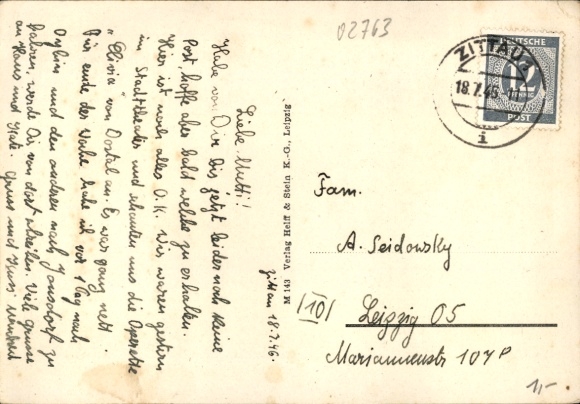 02763
DEUTSCHE
12
POST
ZITTAU
18.7.46
i
Zittau 18.7.46.
Liebe Mutti!
Habe von Dir bis jetzt leider noch keine
Post, hoffe aber bald welche zu erhalten.
Hier ist noch alles O.K. Wir waren gestern
im Stadttheater und schauten uns die Operette
"Clivia" von Dostal an. Es war ganz nett.
Für ende der Woche habe ich vor 1 Tag nach
Oybin und den anderen nach Jonsdorf zu
fahren, werde Dir von dort schreiben. Viele Grüsse
an Haus und Gruss und Kuss
M 143 Verlag Heiff & Stein K.-G., Leipzig
Fam.
A. Seidowsky
(10) Leipzig O5
Mariannenstr 107P
1,-